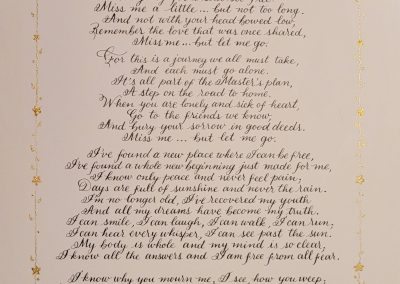 Miss me a little... but not too long.
And not with your head bowed low,
Remember the love that was once shared,
Miss me... but let me go.
For this is a journey we all must take,
And each must go alone.
It's all part of the Master's plan,
A step on the road to home.
When you are lonely and sick of heart,
Go to the friends we know,
And bury your sorrow in good deeds.
Miss me... but let me go.
I've found a new place where I can be free,
I've found a whole new beginning just made for me,
I know only peace and never feel pain;
Days are full of sunshine and never the rain.
I'm no longer old, I've recovered my youth
And all my dreams have become my truth.
I can smile, I can laugh, I can walk, I can run;
I can hear every whisper, I can see past the sun.
My body is whole and my mind is so clear,
I know all the answers and I am free from all fear.
I know why you mourn me, I see how you weep;